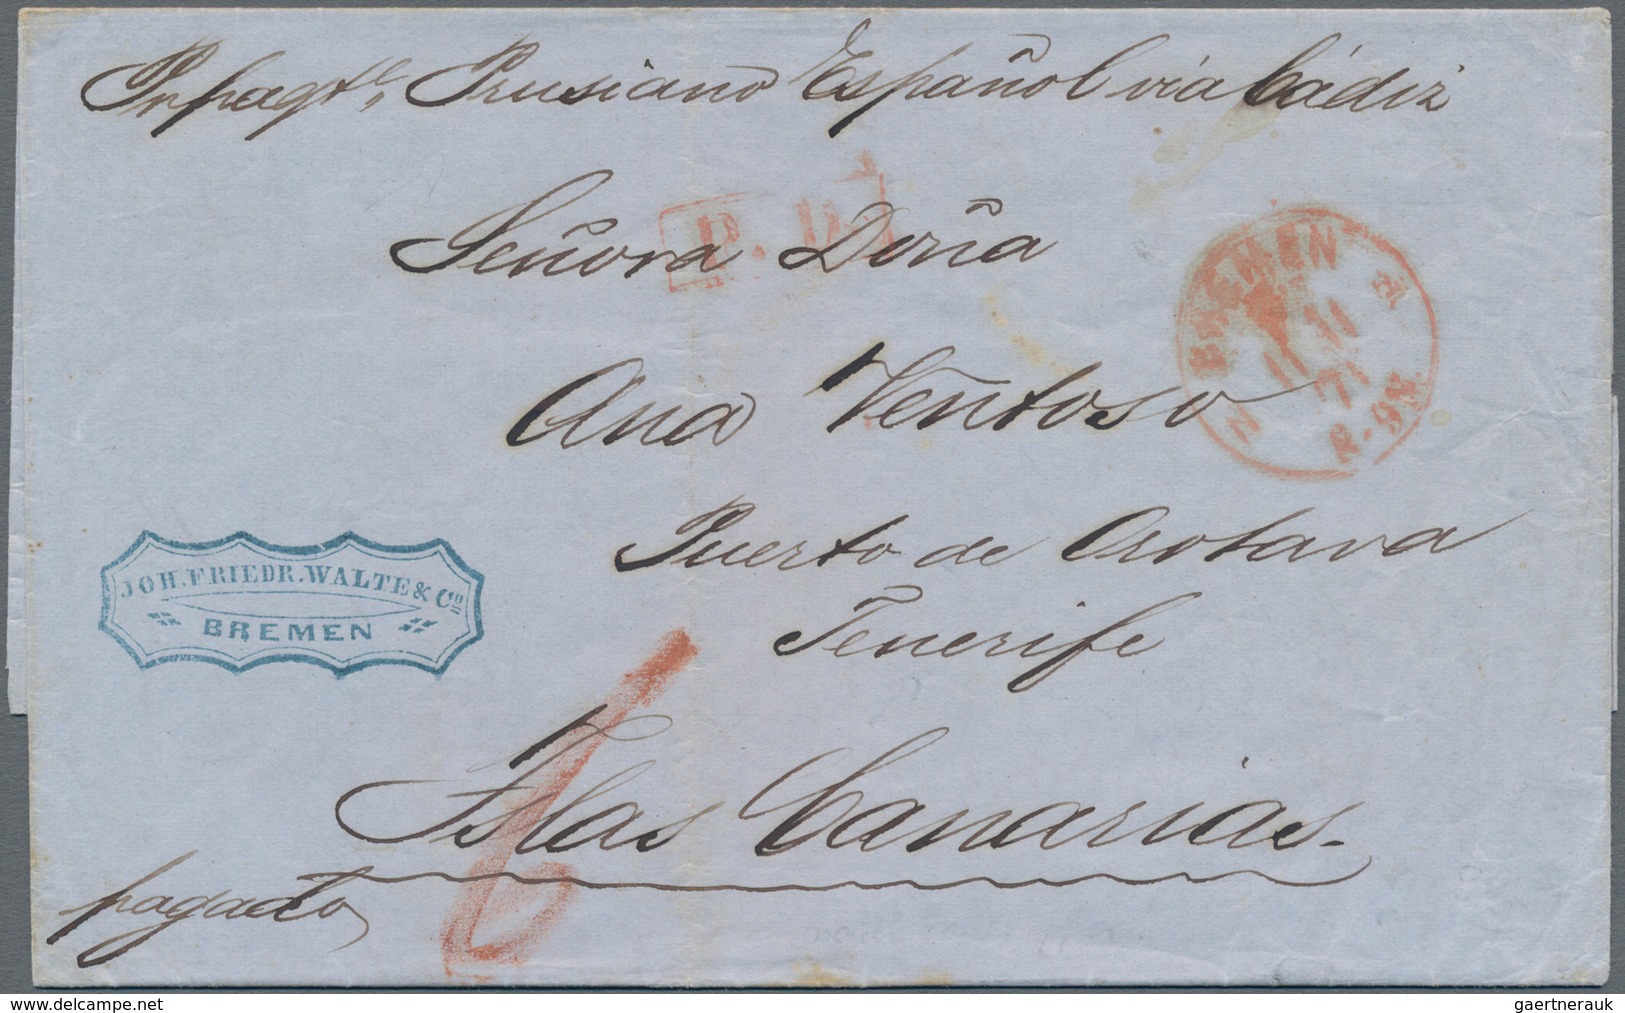 Pr paqte Prusiano Español via Cádiz
P. D.
Señora Doña
BREMEN
11 11
71
8-9N.
N
Ana Ventoso
Puerto de Orotava
JOH. FRIEDR. WALTE & Co
BREMEN
Tenerife
6
Islas Canarias.
pagado
© www.delcampe.net
gaertnerauk